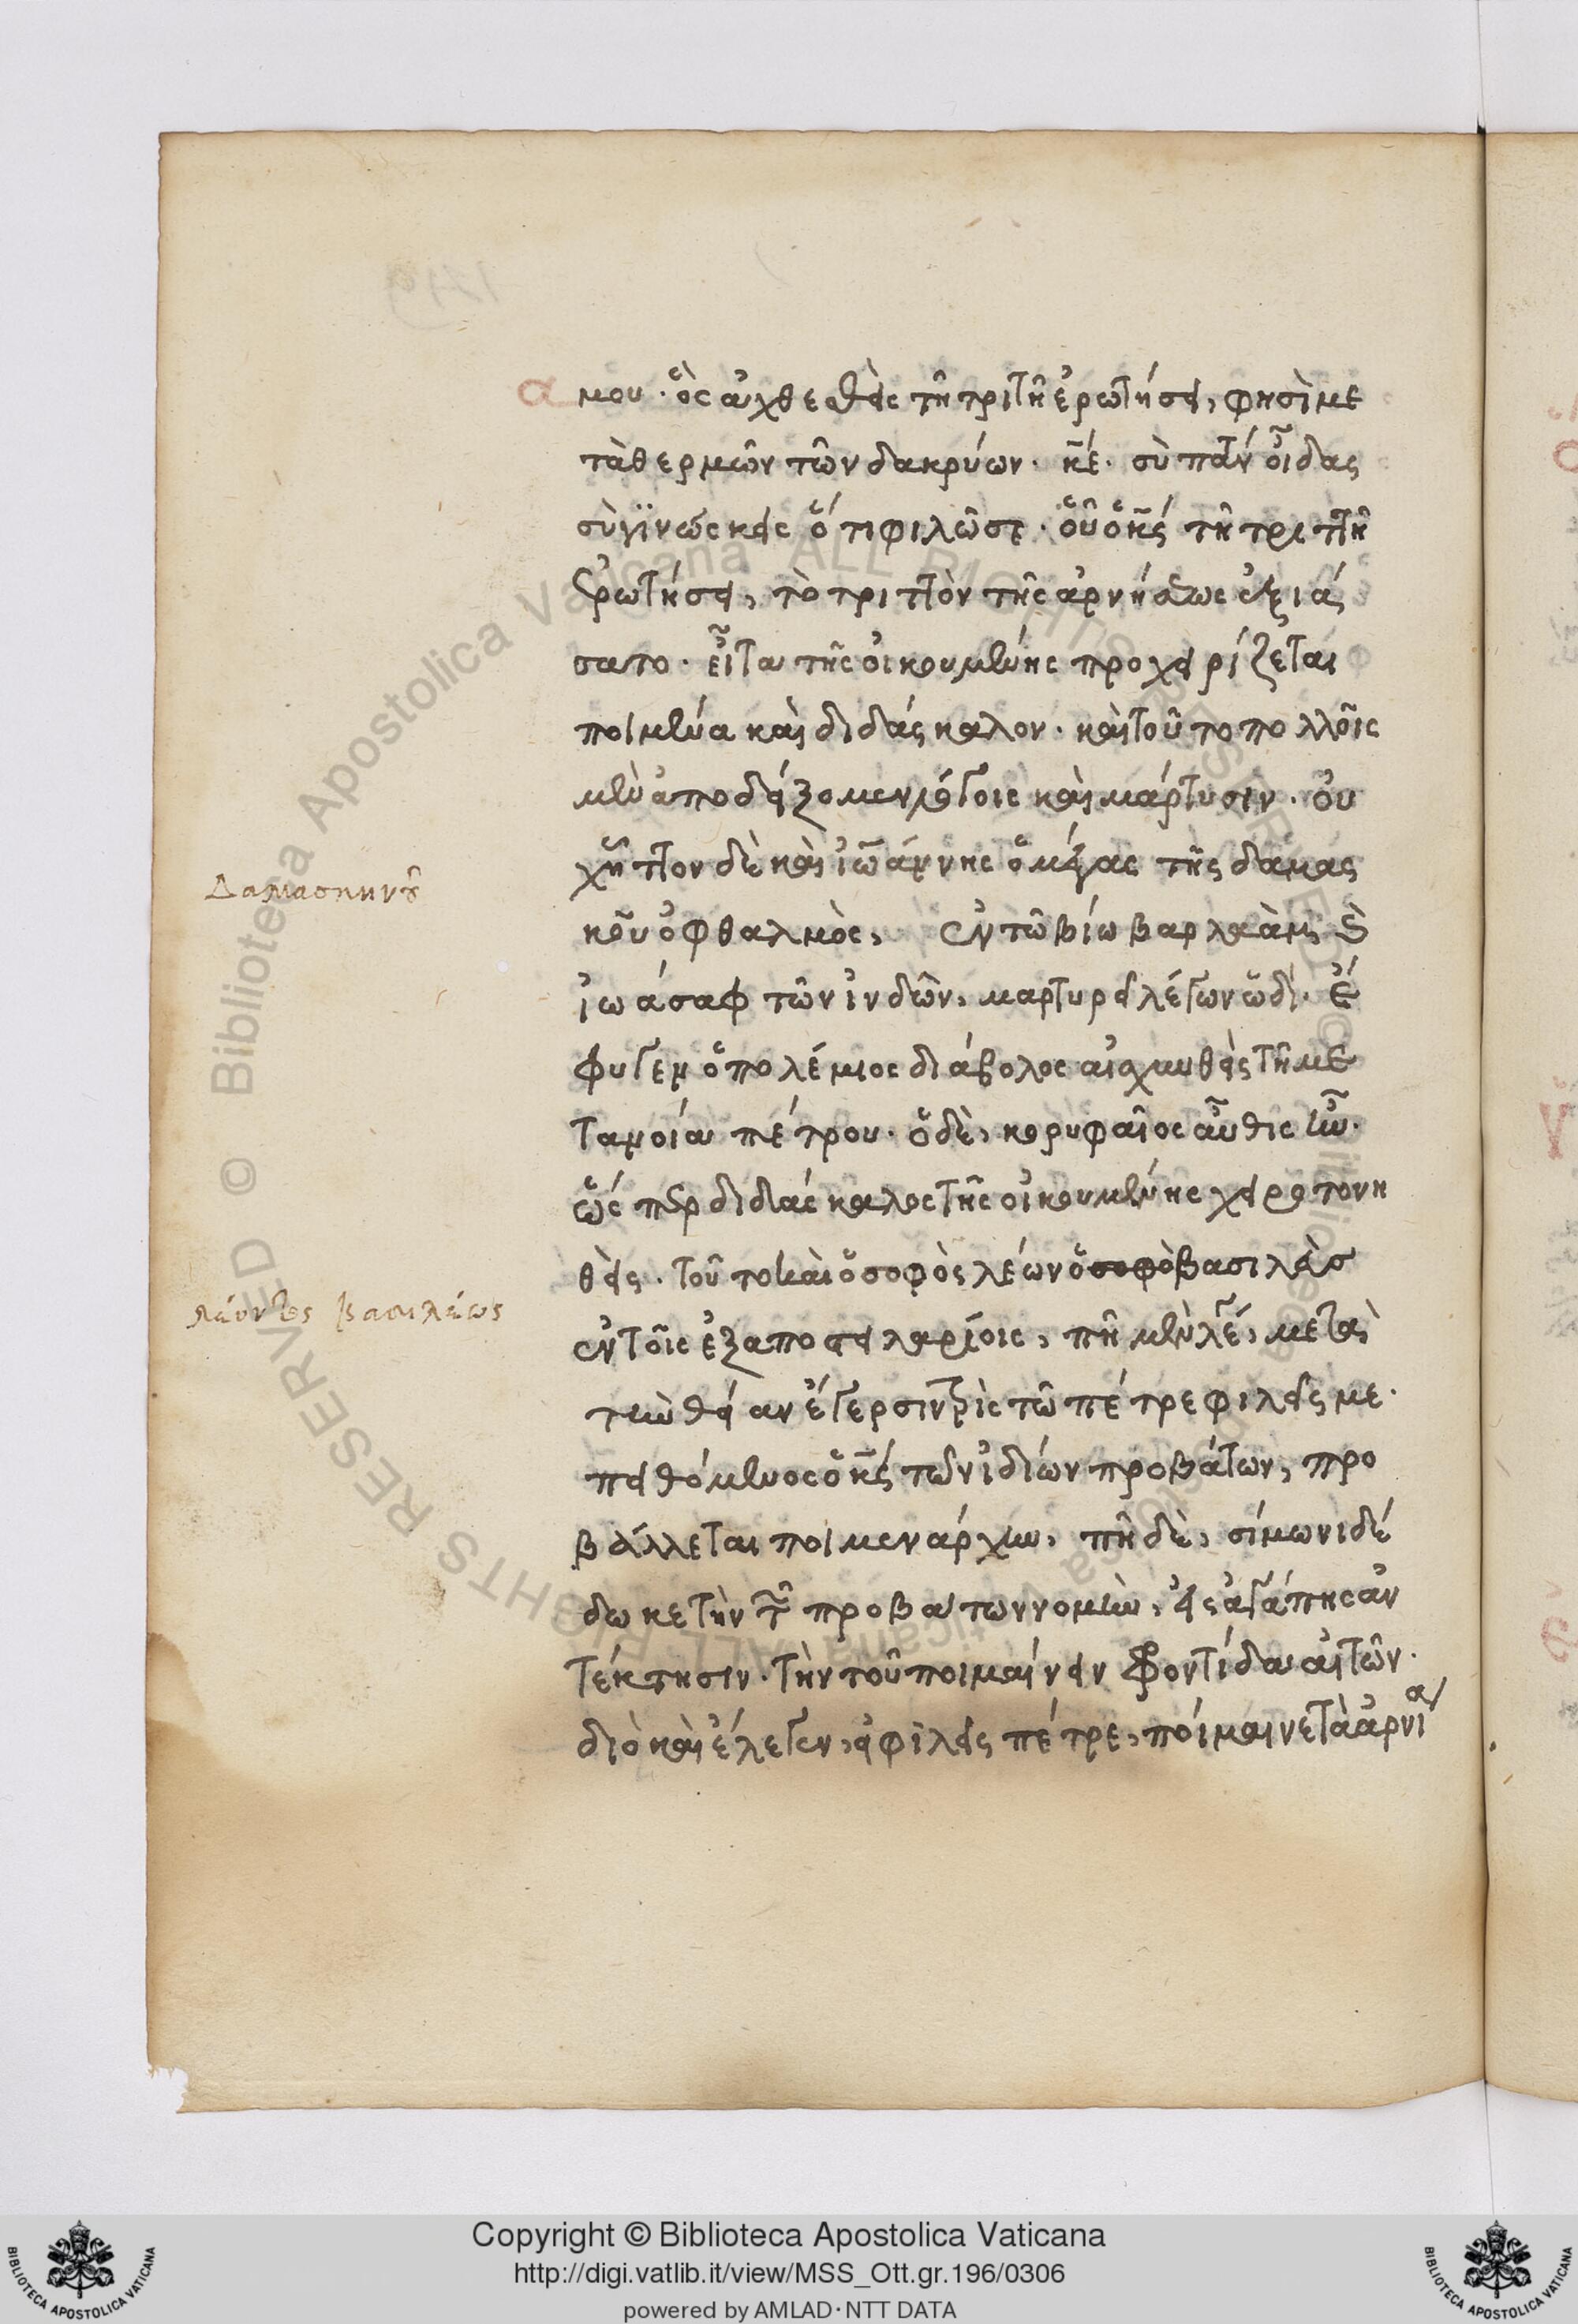 μου· ὃς ἀχθεσθεὶς τῆ τρίτη ἐρωτήσει, φησὶ με
τὰ θερμῶν τῶν δακρύων· κε̄· σὺ πάντ οἶδας
σὺ γϊνώσκεις ὅτι φιλῶ σε· οὗ ὁ κς̄ τῆ τρίττῆ
ἐρωτήσει, τὸ τριττὸν τῆς ἀρνήσεως ἐξιά
σατο· εἶτα τῆς οἰκουμένης προχειρίζεται
ποιμένα καὶ διδάσκαλον· καὶ τοῦτο πολλοῖς
μὲν ἀποδείξομεν λόγοις καὶ μάρτυσιν· οὐ
χῆττον δὲ καὶ ἰωάννης ὁ μέγας τῆς δαμας
κοῦ ὀφθαλμὸς, ἐν τῶ βίω βαρλαὰμ, καὶ
ἰωάσαφ τῶν ἰνδῶν, μαρτυρεῖ λέγων ὧδί· ἔ
φυγεν ὁ πολέμιος διάβολος αἰσχυνθεὶς τῆ με
τανοία πέτρου· ὁ δὲ, κορυφαῖος αὖθις ἦν·
ὥσπερ διδάσκαλος τῆς οἰκουμένης χειροτονη
θεὶς· τοῦτο καὶ ὁ σοφὸς λέων ὁ σοφὸ βασιλεὺσ
ἐν τοῖς ἐξαποστειλαρίοις, πῆ μὲν λέγει, μετὰ
τὴν θείαν ἔγερσιν τρὶς τῶ πέτρε φιλεῖς με·
πειθόμενος ὁ κς̄ τῶν ἰδίων προβάτων, προ
βάλλεται ποιμενάρχην, πῆ δὲ, σίμωνι δέ
δωκε τὴν τῶν προβάτων νομὴν, εἰς ἀγάπης ἀν
τέκτησιν· τὴν τοῦ ποιμαίνειν φροντίδα αἰτῶν·
διὸ καὶ ἔλεγεν, εἰ φιλεῖς πέτρε, ποίμαινε τὰ ἀρνία
Δαμασκηνοῦ
Λέοντος βασιλέως
α
Copyright © Biblioteca Apostolica Vaticana
http://digi.vatlib.it/view/MSS_Ott.gr.196/0306
powered by AMLAD · NTT DATA
BIBLIOTECA APOSTOLICA VATICANA
BIBLIOTECA APOSTOLICA VATICANA